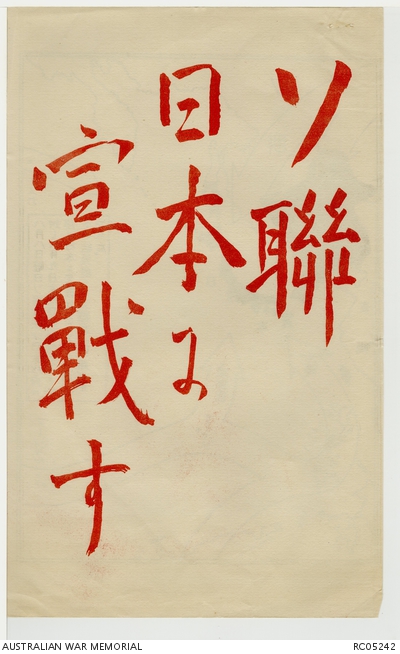 ソ聯
日本に
宣戰す
AUSTRALIAN WAR MEMORIAL
RC05242